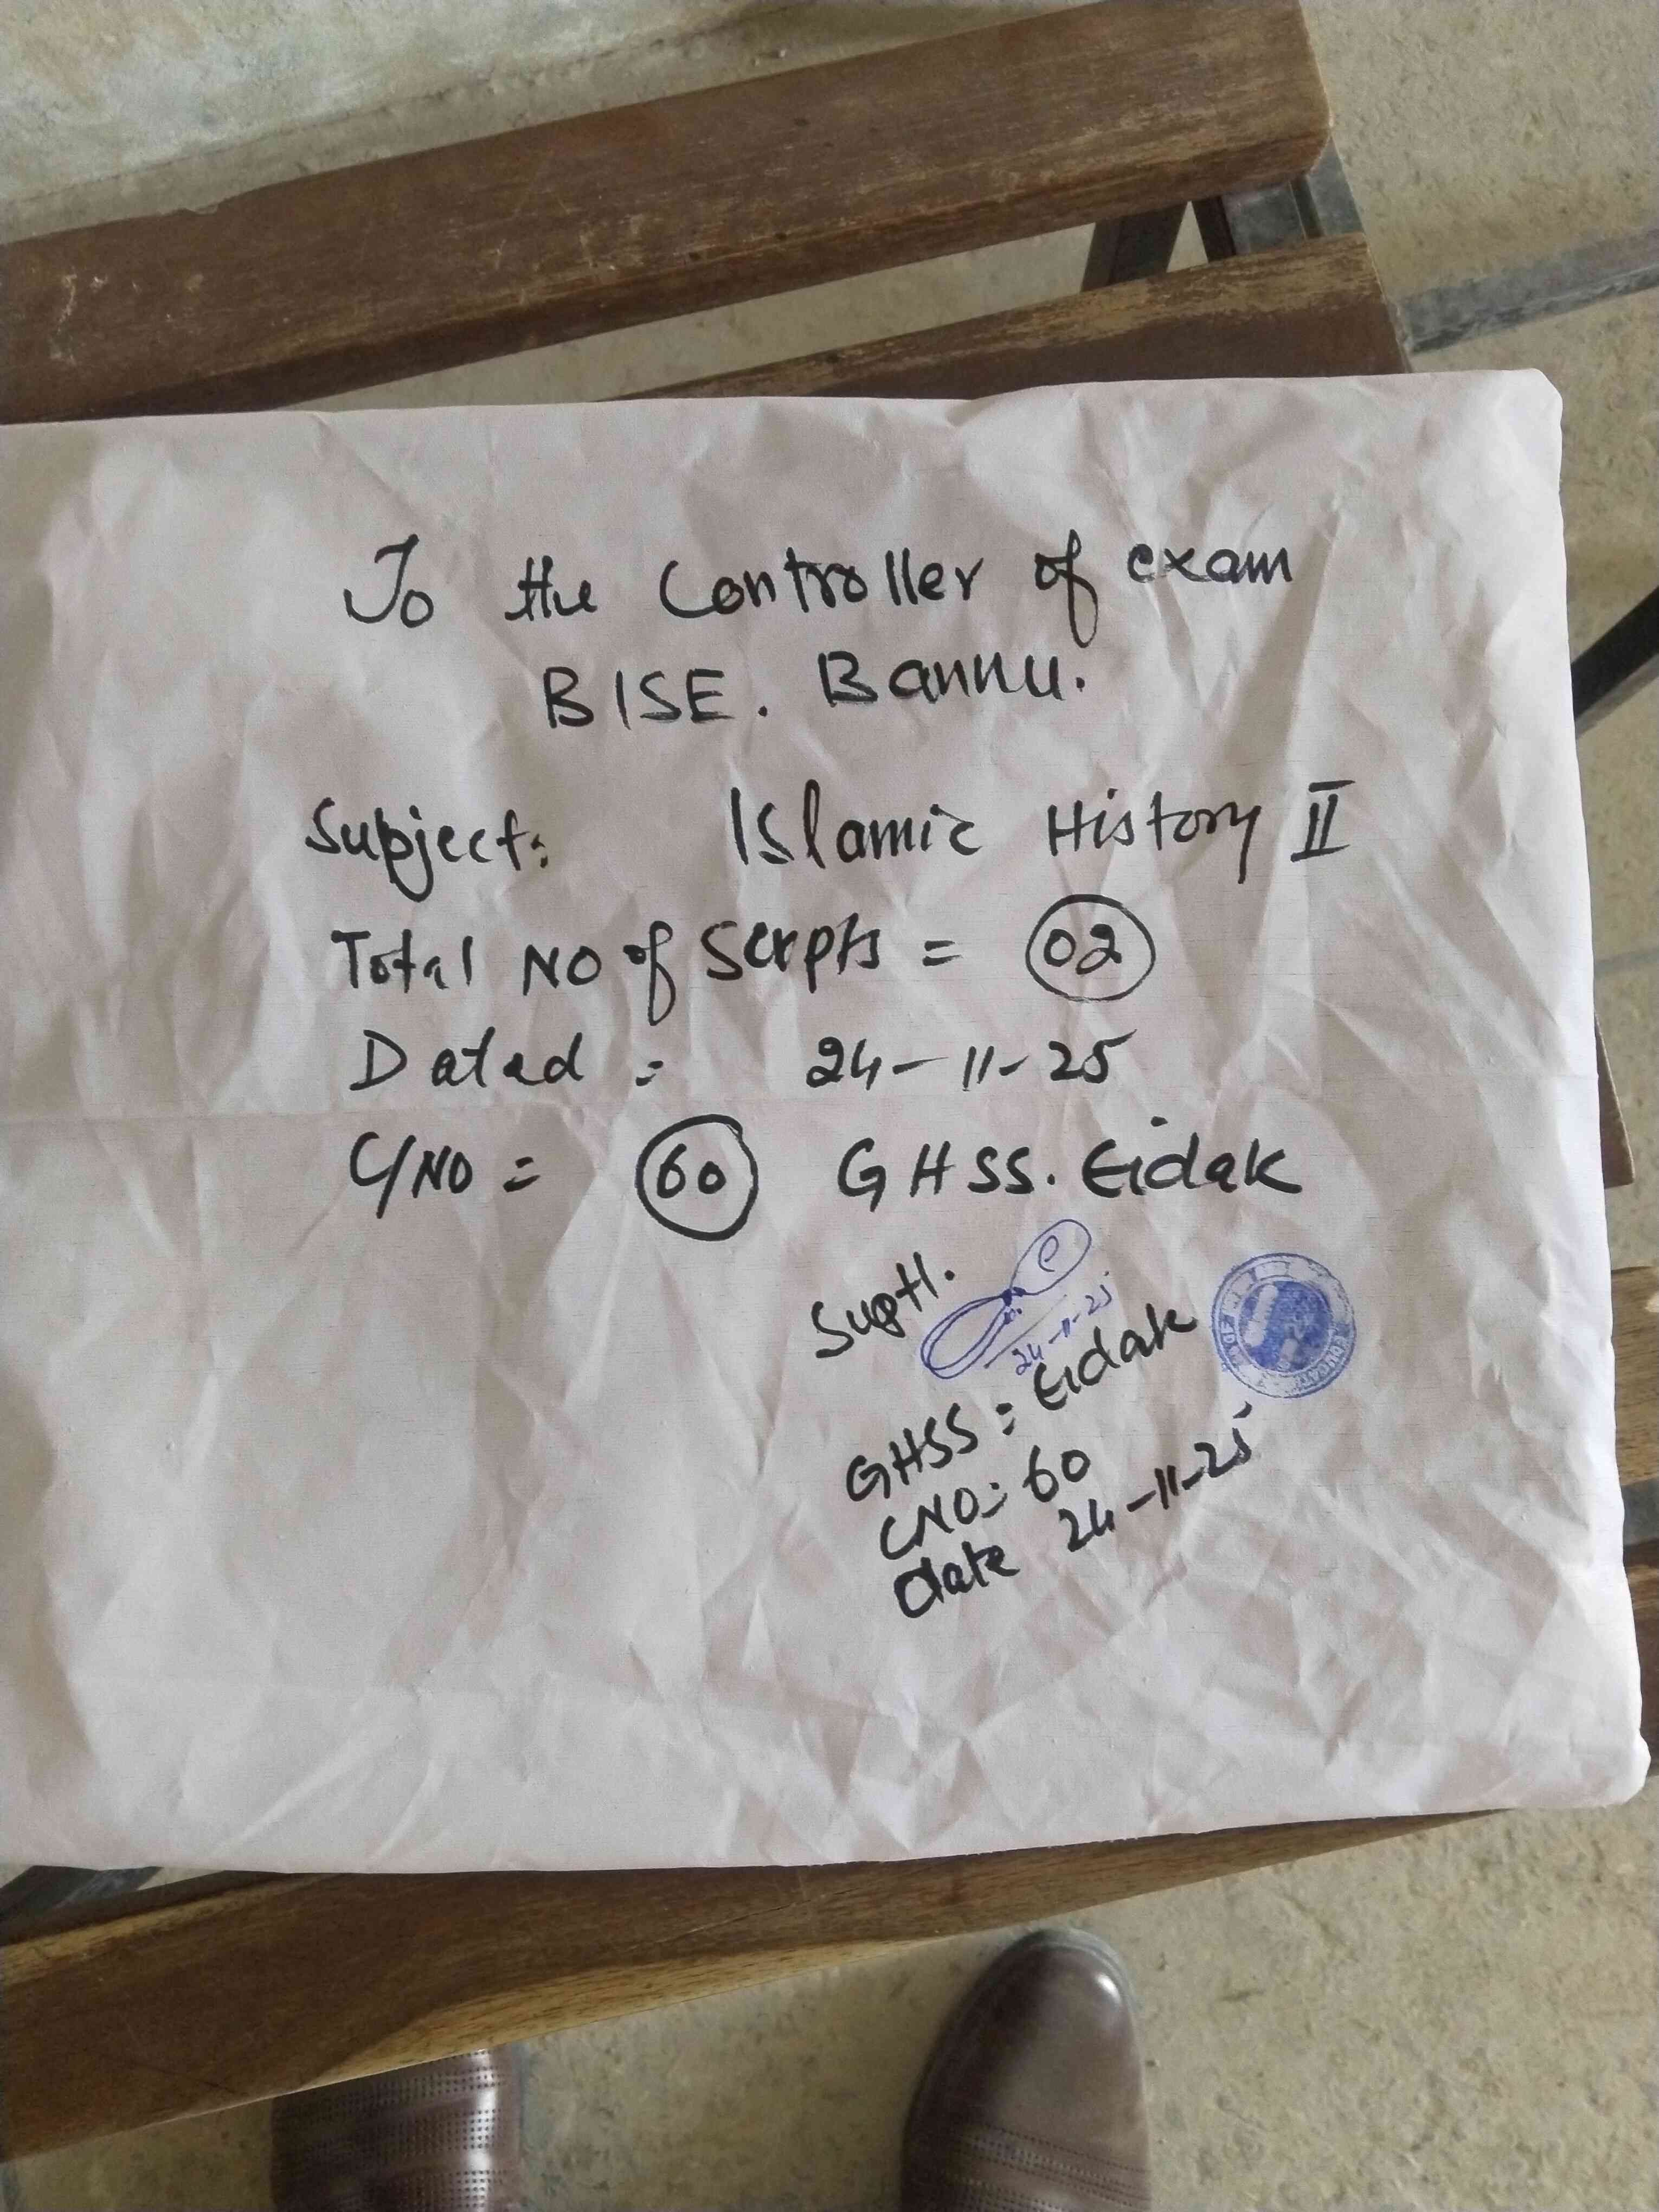 To the Controller of exam
BISE. Bannu.
Subject: Islamic History II
Total NO of Scrpts = 02
Dated = 24-11-25
C/NO = 60 GHSS. Eidak
Suptt.
24-11-25
GHSS = Eidak
CNO = 60
date 24-11-25